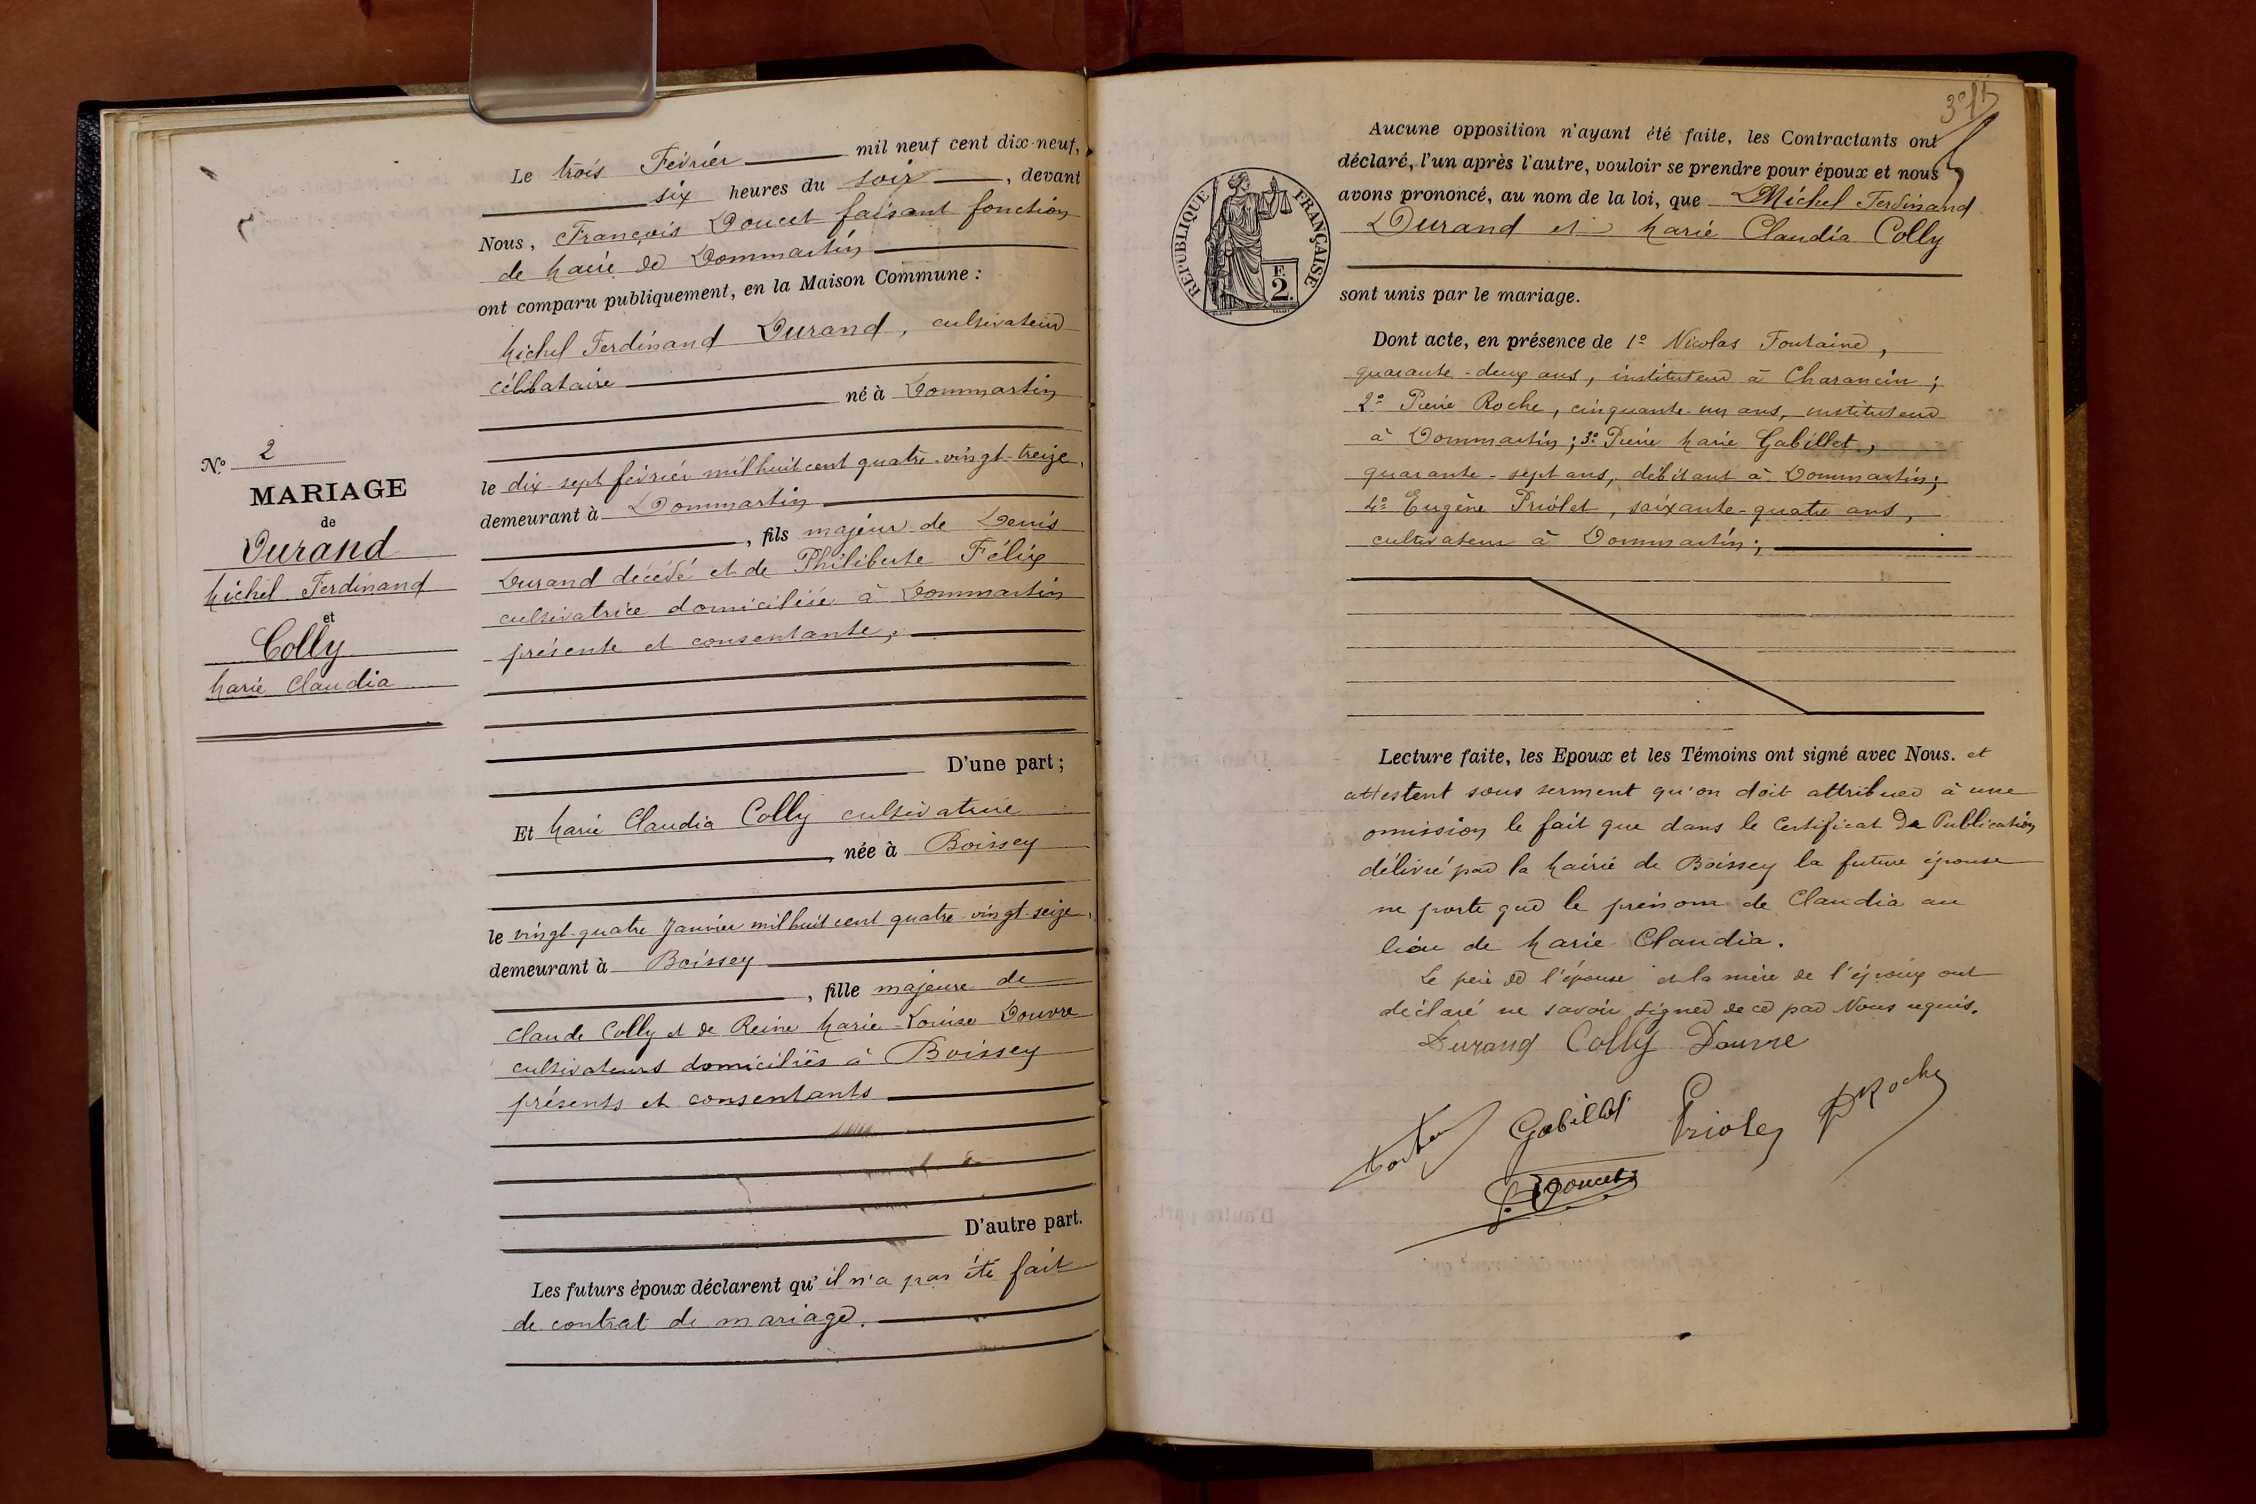 N.° 2
MARIAGE
de
Durand
Michel Ferdinand
et
Colly
Marie Claudia
Le trois Février mil neuf cent dix-neuf,
six heures du soir, devant
Nous, François Doucet faisant fonction
de Maire de Dommartin
ont comparu publiquement, en la Maison Commune :
Michel Ferdinand Durand, cultivateur
célibataire
né à Dommartin
le dix-sept février mil huit cent quatre-vingt-treize,
demeurant à Dommartin
, fils majeur de Denis
Durand décédé et de Philiberte Félix
cultivatrice domiciliée à Dommartin
présente et consentante,
D'une part ;
Et Marie Claudia Colly cultivatrice
, née à Boissey
le vingt-quatre Janvier mil huit cent quatre-vingt-seize,
demeurant à Boissey
, fille majeure de
Claude Colly et de Reine Marie-Louise Douvre
cultivateurs domiciliés à Boissey
présents et consentants
D'autre part.
Les futurs époux déclarent qu'il n'a pas été fait
de contrat de mariage.
Aucune opposition n'ayant été faite, les Contractants ont
déclaré, l'un après l'autre, vouloir se prendre pour époux et nous
avons prononcé, au nom de la loi, que Michel Ferdinand
Durand et Marie Claudia Colly
RÉPUBLIQUE FRANÇAISE
F.
2.
sont unis par le mariage.
Dont acte, en présence de 1° Nicolas Fontaine,
quarante-deux ans, instituteur à Charancin ;
2° Pierre Roche, cinquante-un ans, instituteur
à Dommartin ; 3° Pierre Marie Gabillet,
quarante-sept ans, débitant à Dommartin ;
4° Eugène Priolet, soixante-quatre ans,
cultivateur à Dommartin ;
Lecture faite, les Epoux et les Témoins ont signé avec Nous. et
attestent sous serment qu'on doit attribuer à une
omission le fait que dans le Certificat de Publication
délivré par la Mairie de Boissey la future épouse
ne porte que le prénom de Claudia au
lieu de Marie Claudia.
Le père de l'épouse et la mère de l'époux ont
déclaré ne savoir signer de ce par Nous requis.
Durand Colly Douvre
Gabillet Priolet P Roche
F. Doucet